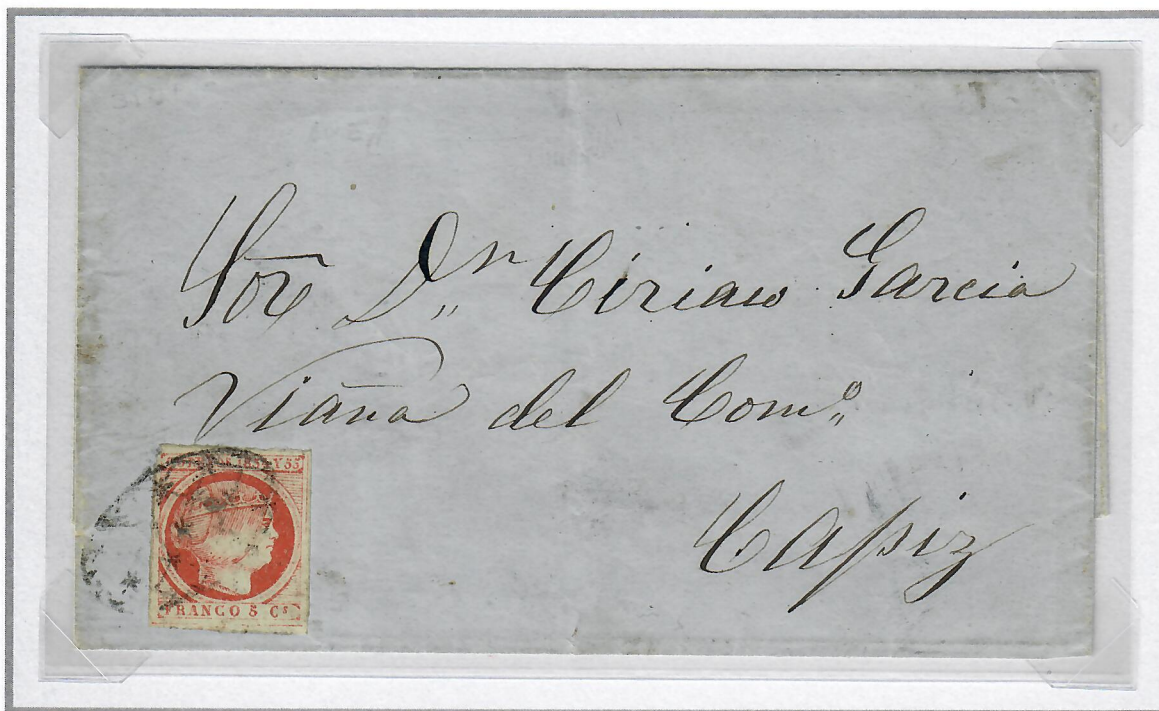 Sor Dn Ciriaco Garcia
Viaña del Como
Capiz
1854 Y 55
FRANCO 5 Cs